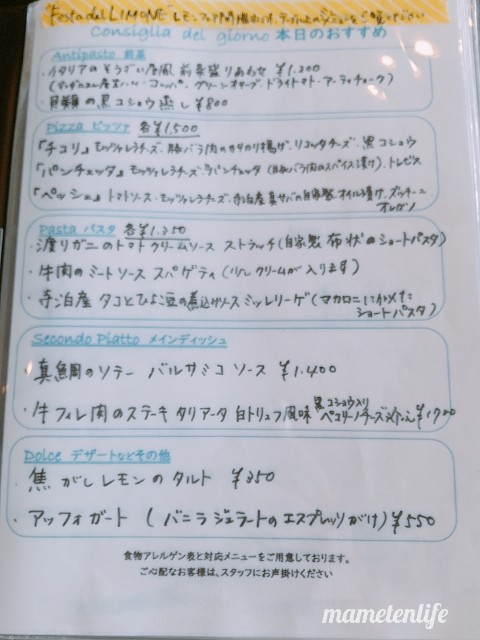 "Festa del LIMONE" レモンフェア開催中!! テーブル上のメニューをご覧ください
Consiglia del giorno 本日のおすすめ
Antipasto 前菜
・イタリアのそうざい屋風 前菜盛りあわせ ¥1,200
グリーンオリーブ・ドライトマト・アーティチョーク)
・貝類の黒コショウ蒸し ¥800
Pizza ピッツァ 各¥1,500
「チコリ」モッツァレラチーズ・豚バラ肉のカリカリ揚げ・リコッタチーズ・黒コショウ
「パンチェッタ」モッツァレラチーズ・パンチェッタ(豚バラ肉のスパイス漬け)・トレビス
「ペッシェ」トマトソース・モッツァレラチーズ・寺泊産真サバの自家製オイル漬け・ズッキーニ
オレガノ
Pasta パスタ 各¥1,350
・渡りガニのトマトクリームソース ストラッチ(自家製 布状のショートパスタ)
・牛肉のミートソース スパゲティ(少しクリームが入ります)
・寺泊産 タコとひよこ豆の煮込みソース ミッレリーゲ(マカロニに似た
ショートパスタ)
Secondo Piatto メインディッシュ
・真鯛のソテー バルサミコソース ¥1,400
・牛フィレ肉のステーキ タリアータ 白トリュフ風味 黒コショウ入り
ペコリーノチーズ ¥1700
Dolce デザートなどその他
・焦がしレモンのタルト ¥350
・アッフォガート (バニラジェラートのエスプレッソがけ) ¥550
食物アレルゲン表と対応メニューをご用意しております。
ご心配なお客様は、スタッフにお声掛けください
mametenlife